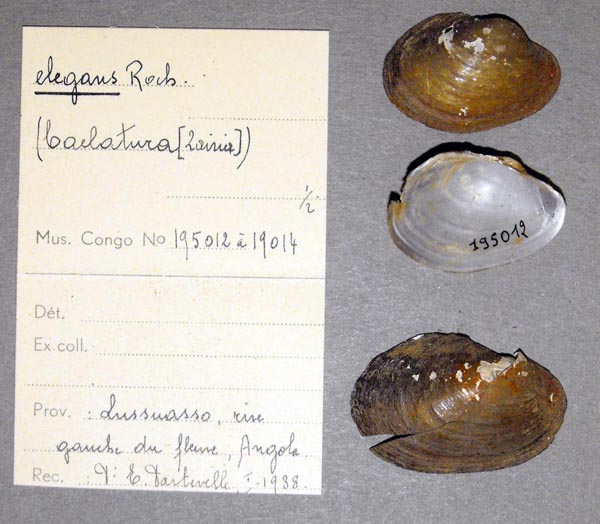 elegans Roch.
(Caelatura [Zairia])
1/2
Mus. Congo No 195012 à 19014
Dét.
Ex coll.
Prov. : Lussuasso, rive
gauche du fleuve, Angola
Rec. : Dr E. Dartevelle, I-1938
195012